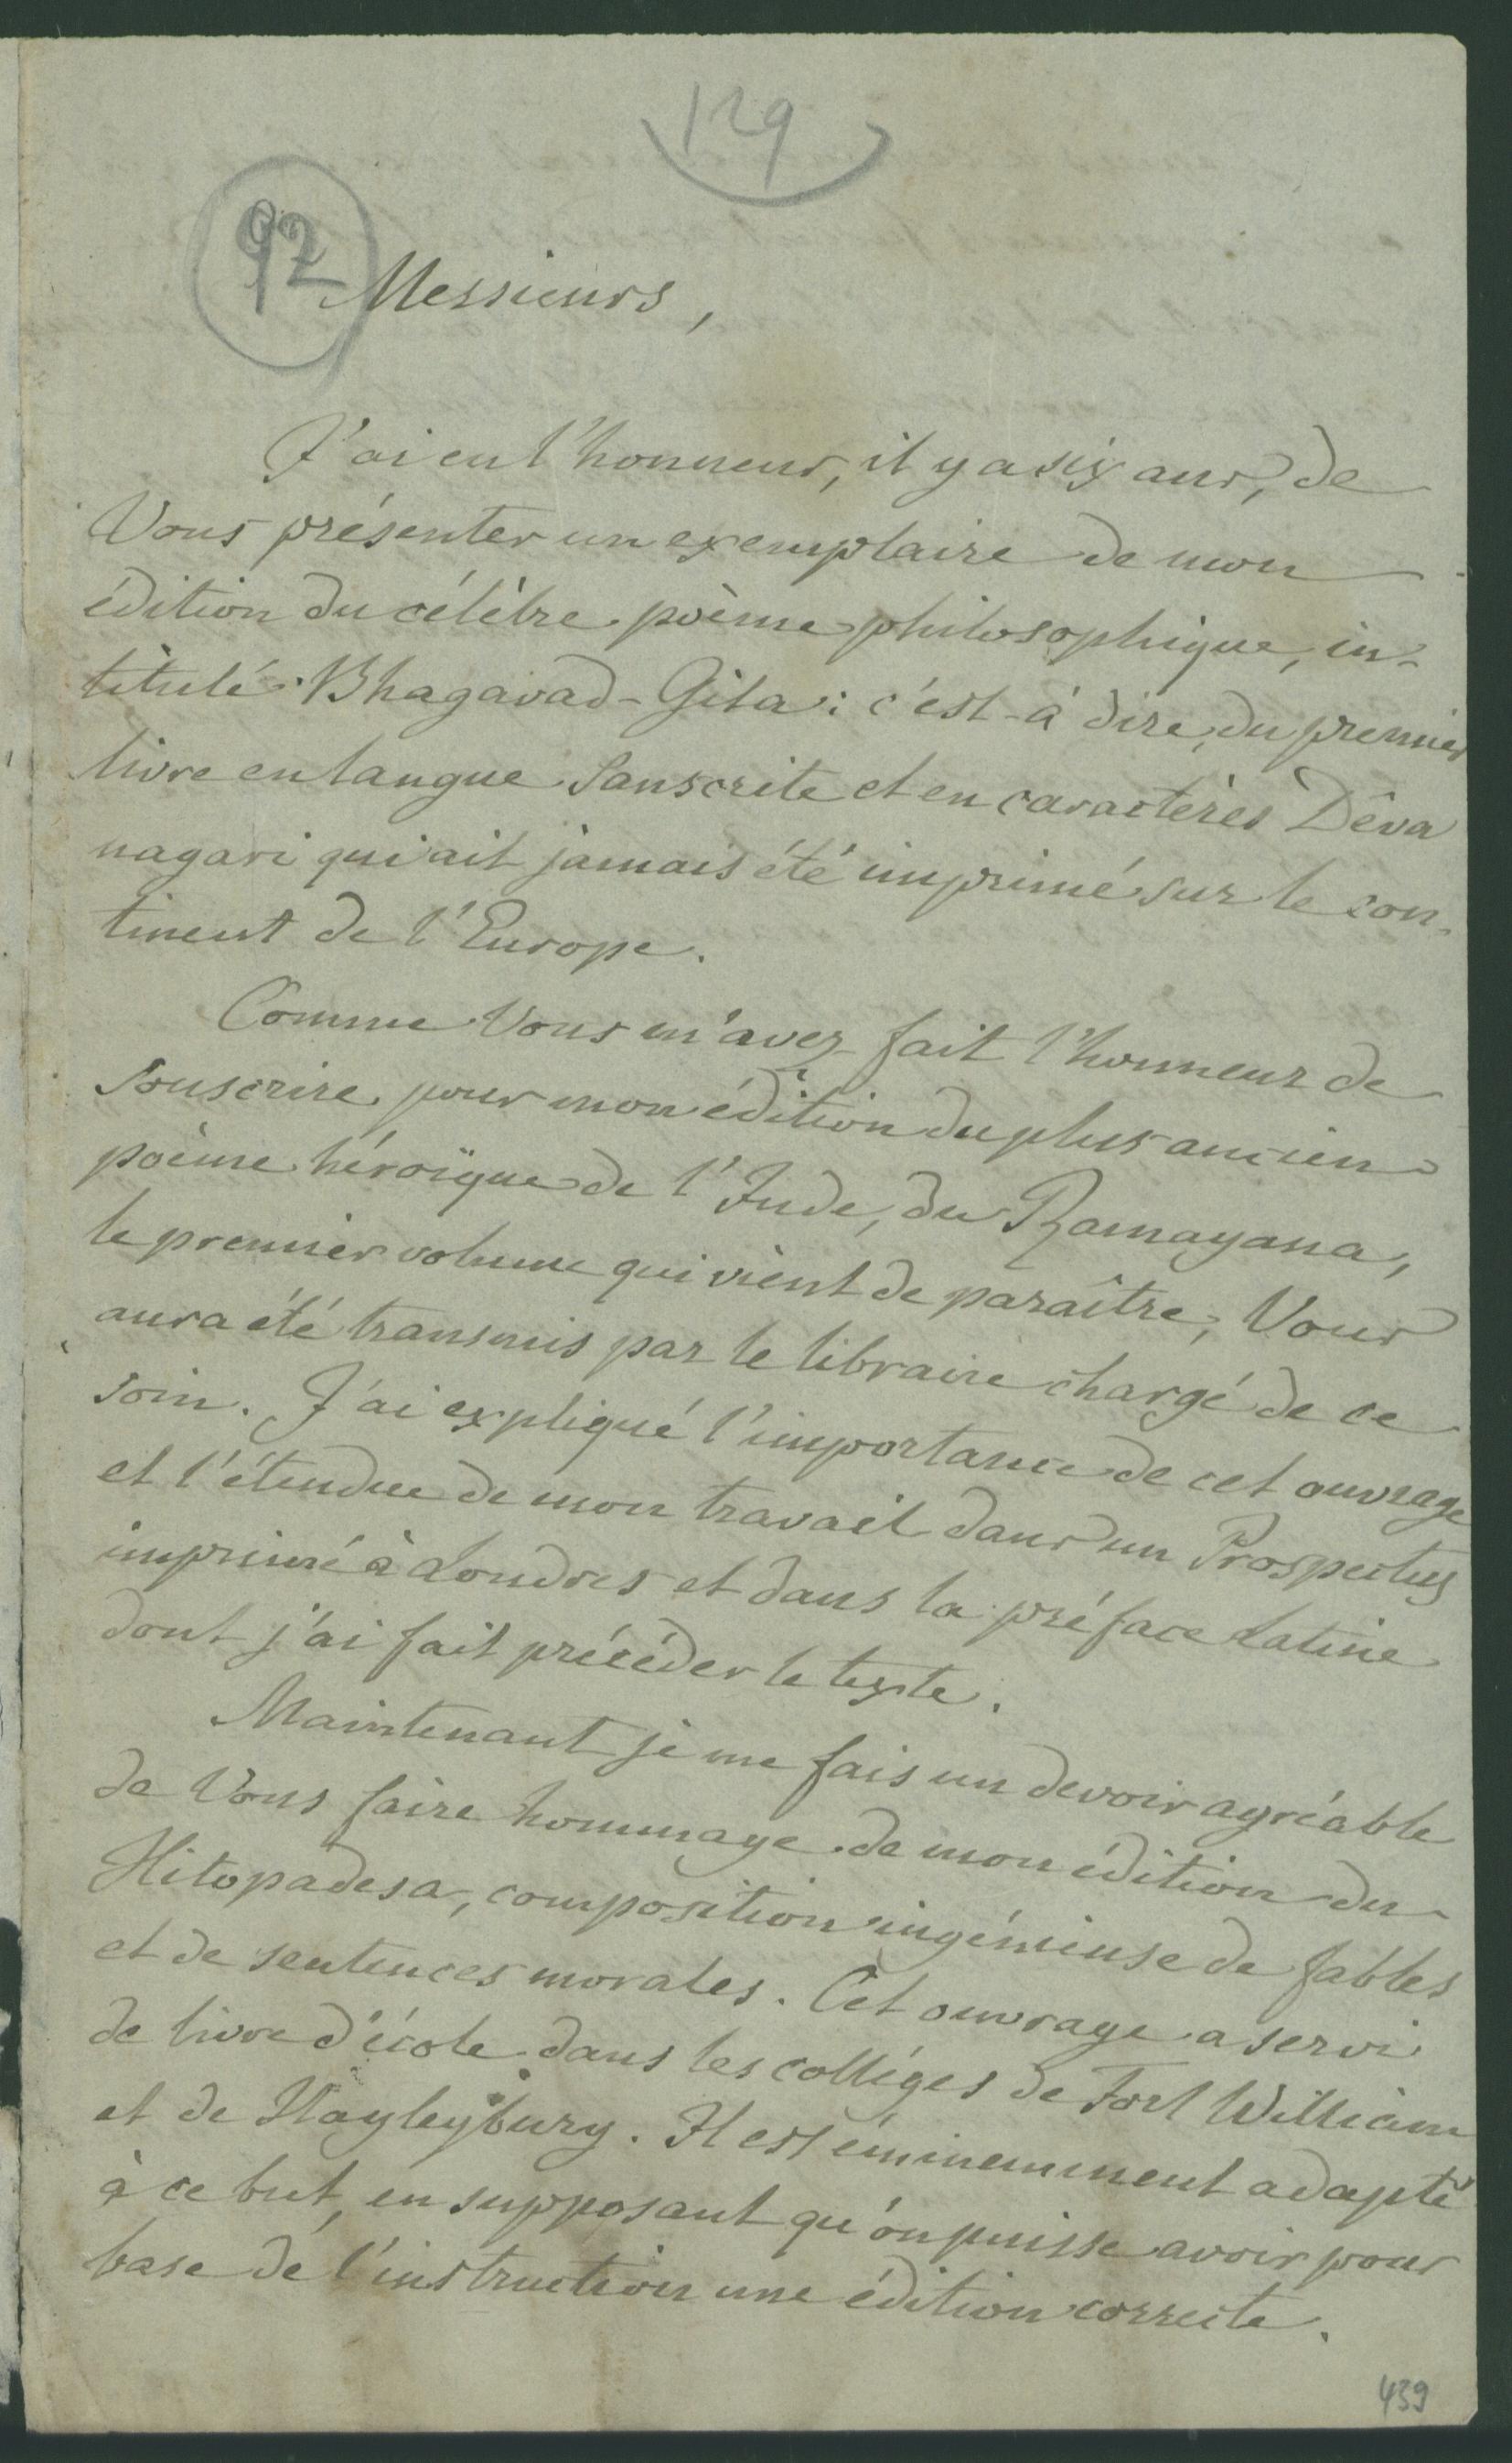 129
92
Messieurs,
J'ai eu l'honneur, il y a six ans, de
Vous présenter un exemplaire de mon
édition du célèbre poème philosophique, in-
titulé Bhagavad-Gita: c'est-à dire, du premier
livre en langue Sanscrite et en caractères Dêva
nagari qui ait jamais été imprimé sur le con-
tinent de l'Europe.
Comme Vous m'avez fait l'honneur de
souscrire pour mon édition du plus ancien
poème héroïque de l'Inde, du Ramayana,
le premier volume qui vient de paraître, Vous
aura été transmis par le libraire chargé de ce
soin. J'ai expliqué l'importance de cet ouvrage
et l'étendue de mon travail dans un Prospectus
imprimé à Londres et dans la préface Latine
dont j'ai fait précéder le texte.
Maintenant je me fais un devoir agréable
de Vous faire hommage de mon édition du
Hitopadesa, composition ingénieuse de fables
et de sentences morales. Cet ouvrage a servi
de livre d'école dans les colléges de Fort William
et de Hayleybury. Il est éminemment adapté
à ce but, en supposant qu'on puisse avoir pour
base de l'instruction une édition correcte.
439